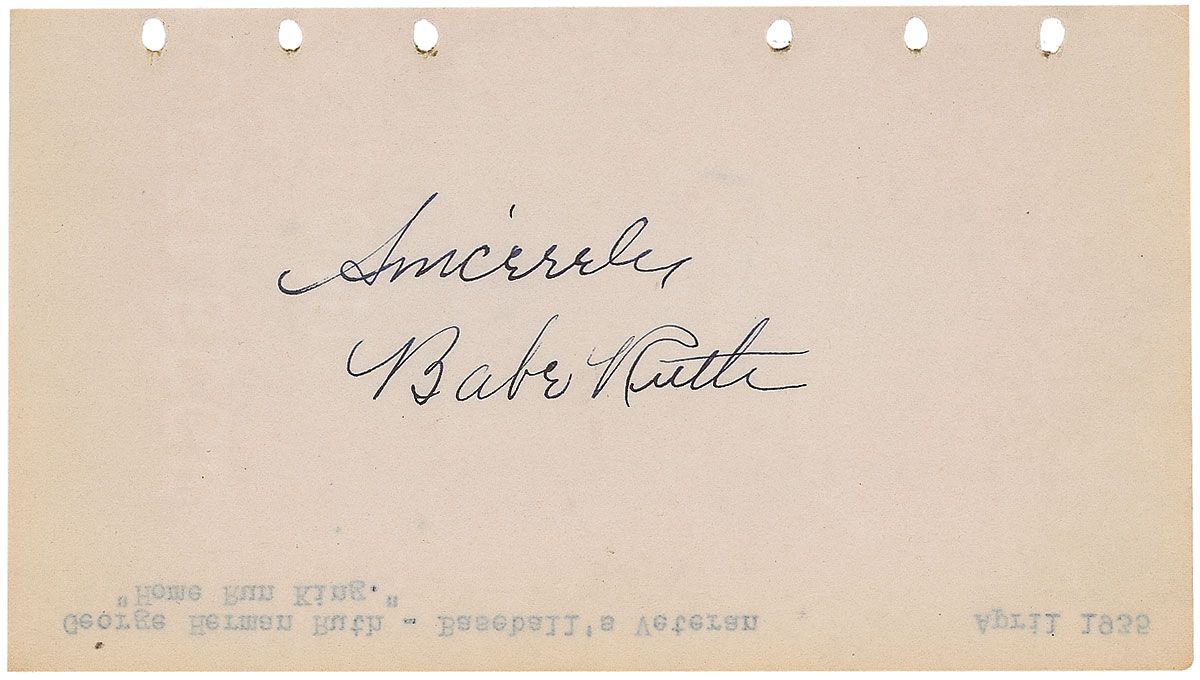 Sincerely,
Babe Ruth
George Herman Ruth - Baseball's Veteran April 1935
"Home Run King."